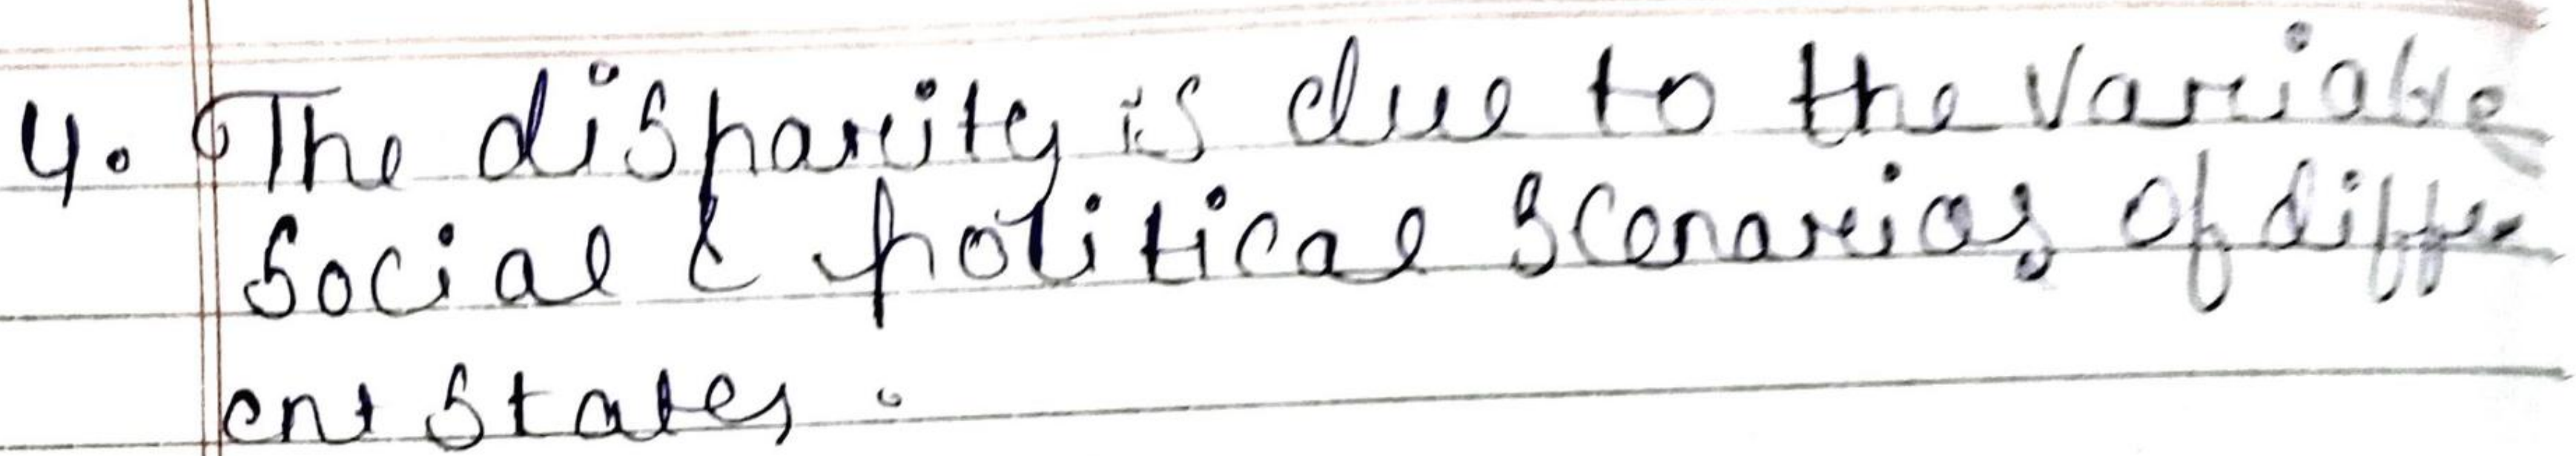 4. The disparity is due to the variable
social & political scenarios of differ
ent states.